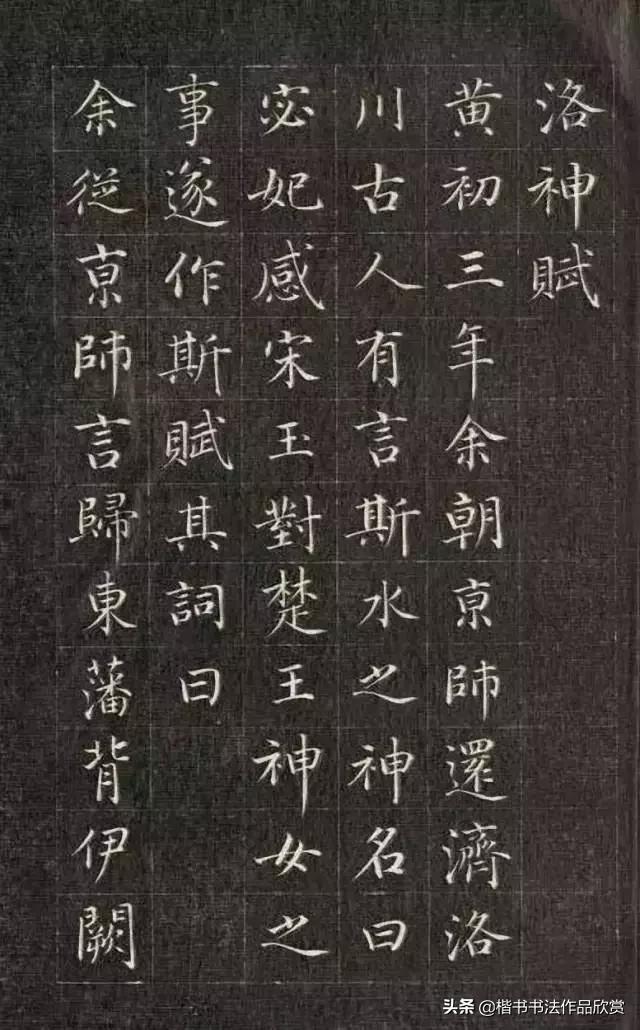 洛神賦
黄初三年余朝京師還濟洛
川古人有言斯水之神名曰
宓妃感宋玉對楚王神女之
事遂作斯賦其詞曰
余從京師言歸東藩背伊闕
头条 @楷书书法作品欣赏